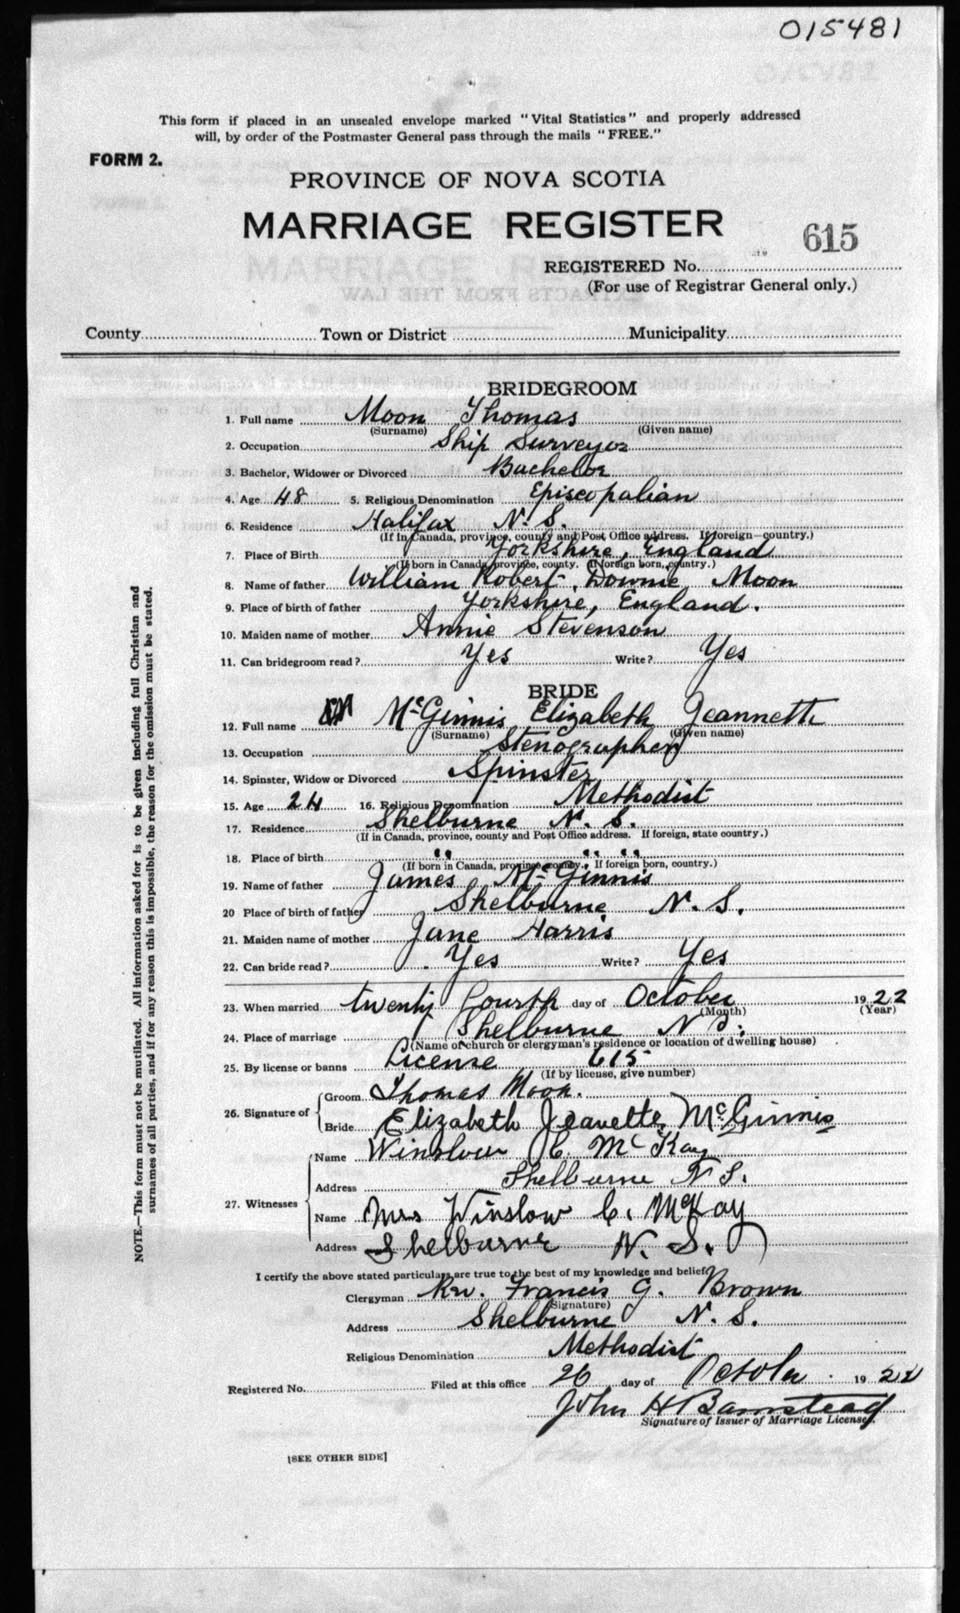 015481
This form if placed in an unsealed envelope marked "Vital Statistics" and properly addressed
will, by order of the Postmaster General pass through the mails "FREE."
FORM 2.
PROVINCE OF NOVA SCOTIA
MARRIAGE REGISTER
615
REGISTERED No.
(For use of Registrar General only.)
County Town or District Municipality
BRIDEGROOM
1. Full name Moon Thomas
(Surname) (Given name)
2. Occupation Ship Surveyor
3. Bachelor, Widower or Divorced Bachelor
4. Age 48 5. Religious Denomination Episcopalian
6. Residence Halifax N. S.
(If In Canada, province, county and Post Office address. If foreign—country.)
7. Place of Birth Yorkshire, England
(If born in Canada, province, county. If foreign born, country.)
8. Name of father William Robert Downie Moon
9. Place of birth of father Yorkshire, England.
10. Maiden name of mother Annie Stevenson
11. Can bridegroom read? Yes Write? Yes
BRIDE
12. Full name McGinnis Elizabeth Jeannette
(Surname) (Given name)
13. Occupation Stenographer
14. Spinster, Widow or Divorced Spinster
15. Age 24 16. Religious Denomination Methodist
17. Residence Shelburne N. S.
(If in Canada, province, county and Post Office address. If foreign, state country.)
18. Place of birth " " "
(If born in Canada, province, county. If foreign born, country.)
19. Name of father James McGinnis
20 Place of birth of father Shelburne N. S.
21. Maiden name of mother Jane Harris
22. Can bride read? Yes Write? Yes
23. When married twenty fourth day of October 1922
(Month) (Year)
24. Place of marriage Shelburne N S.
(Name of church or clergyman's residence or location of dwelling house)
25. By license or banns License 615
(If by license, give number)
26. Signature of Groom Thomas Moon.
Bride Elizabeth Jeanette McGinnis
27. Witnesses Name Winslow C. McKay
Address Shelburne N S.
Name Mrs Winslow C. McKay
Address Shelburne N. S.
I certify the above stated particulars are true to the best of my knowledge and belief.
Clergyman Rev. Francis G. Brown
(Signature)
Address Shelburne N. S.
Religious Denomination Methodist
Registered No. Filed at this office 26 day of October 1922
John H Bamstead
Signature of Issuer of Marriage License.
[SEE OTHER SIDE]
NOTE.—This form must not be mutilated. All information asked for is to be given including full Christian and
surnames of all parties, and if for any reason this is impossible, the reason for the omission must be stated.